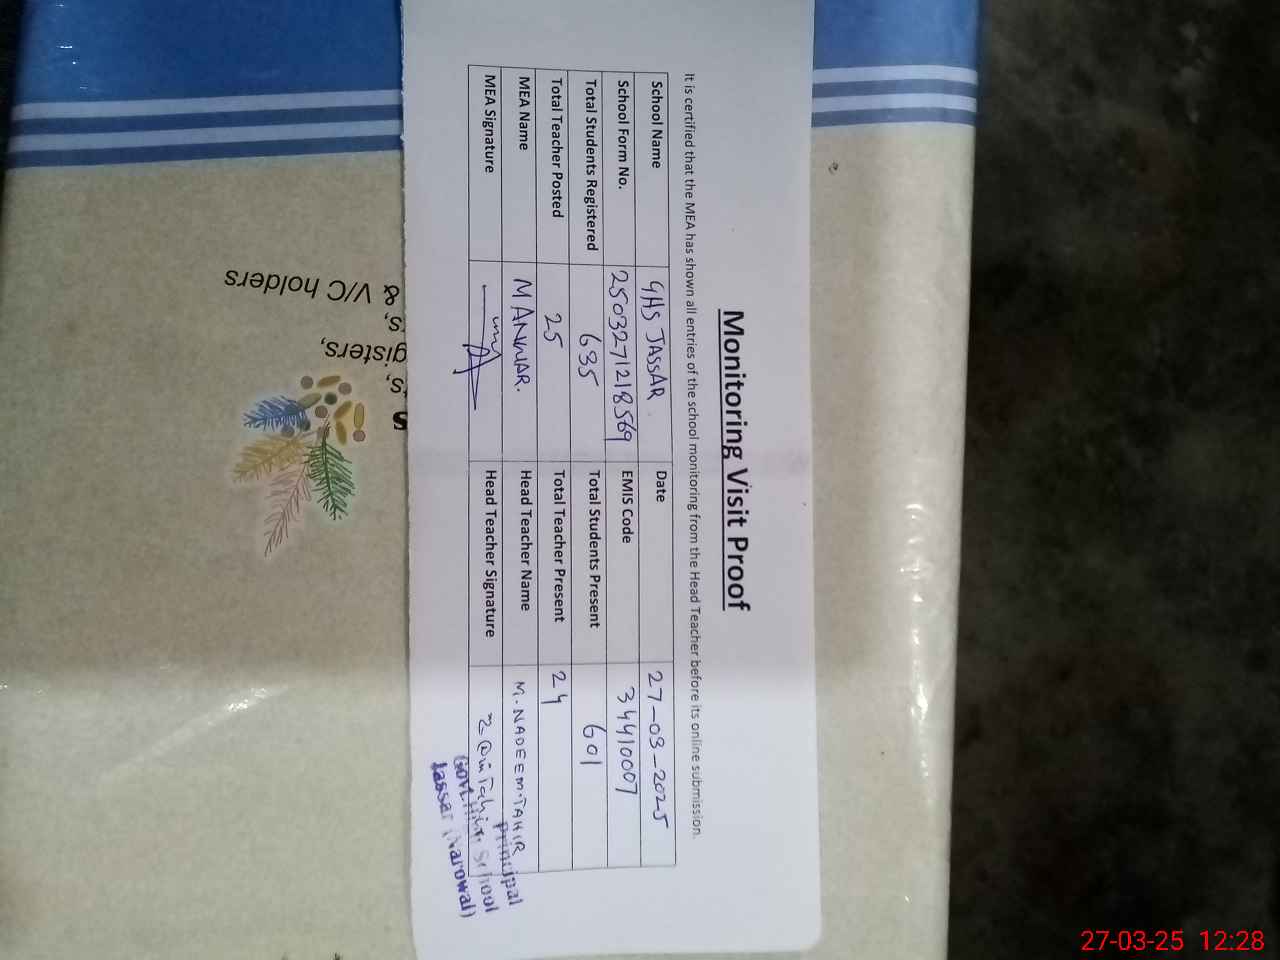 Monitoring Visit Proof
It is certified that the MEA has shown all entries of the school monitoring from the Head Teacher before its online submission.
School Name GHS JASSAR. Date 27-03-2025
School Form No. 2503271218569 EMIS Code 34410007
Total Students Registered 635 Total Students Present 601
Total Teacher Posted 25 Total Teacher Present 24
MEA Name M ANWAR. Head Teacher Name M. NADEEM. TAHIR
MEA Signature Head Teacher Signature
Principal
Govt. High School
Jassar (Narowal)
& V/C holders
27-03-25 12:28